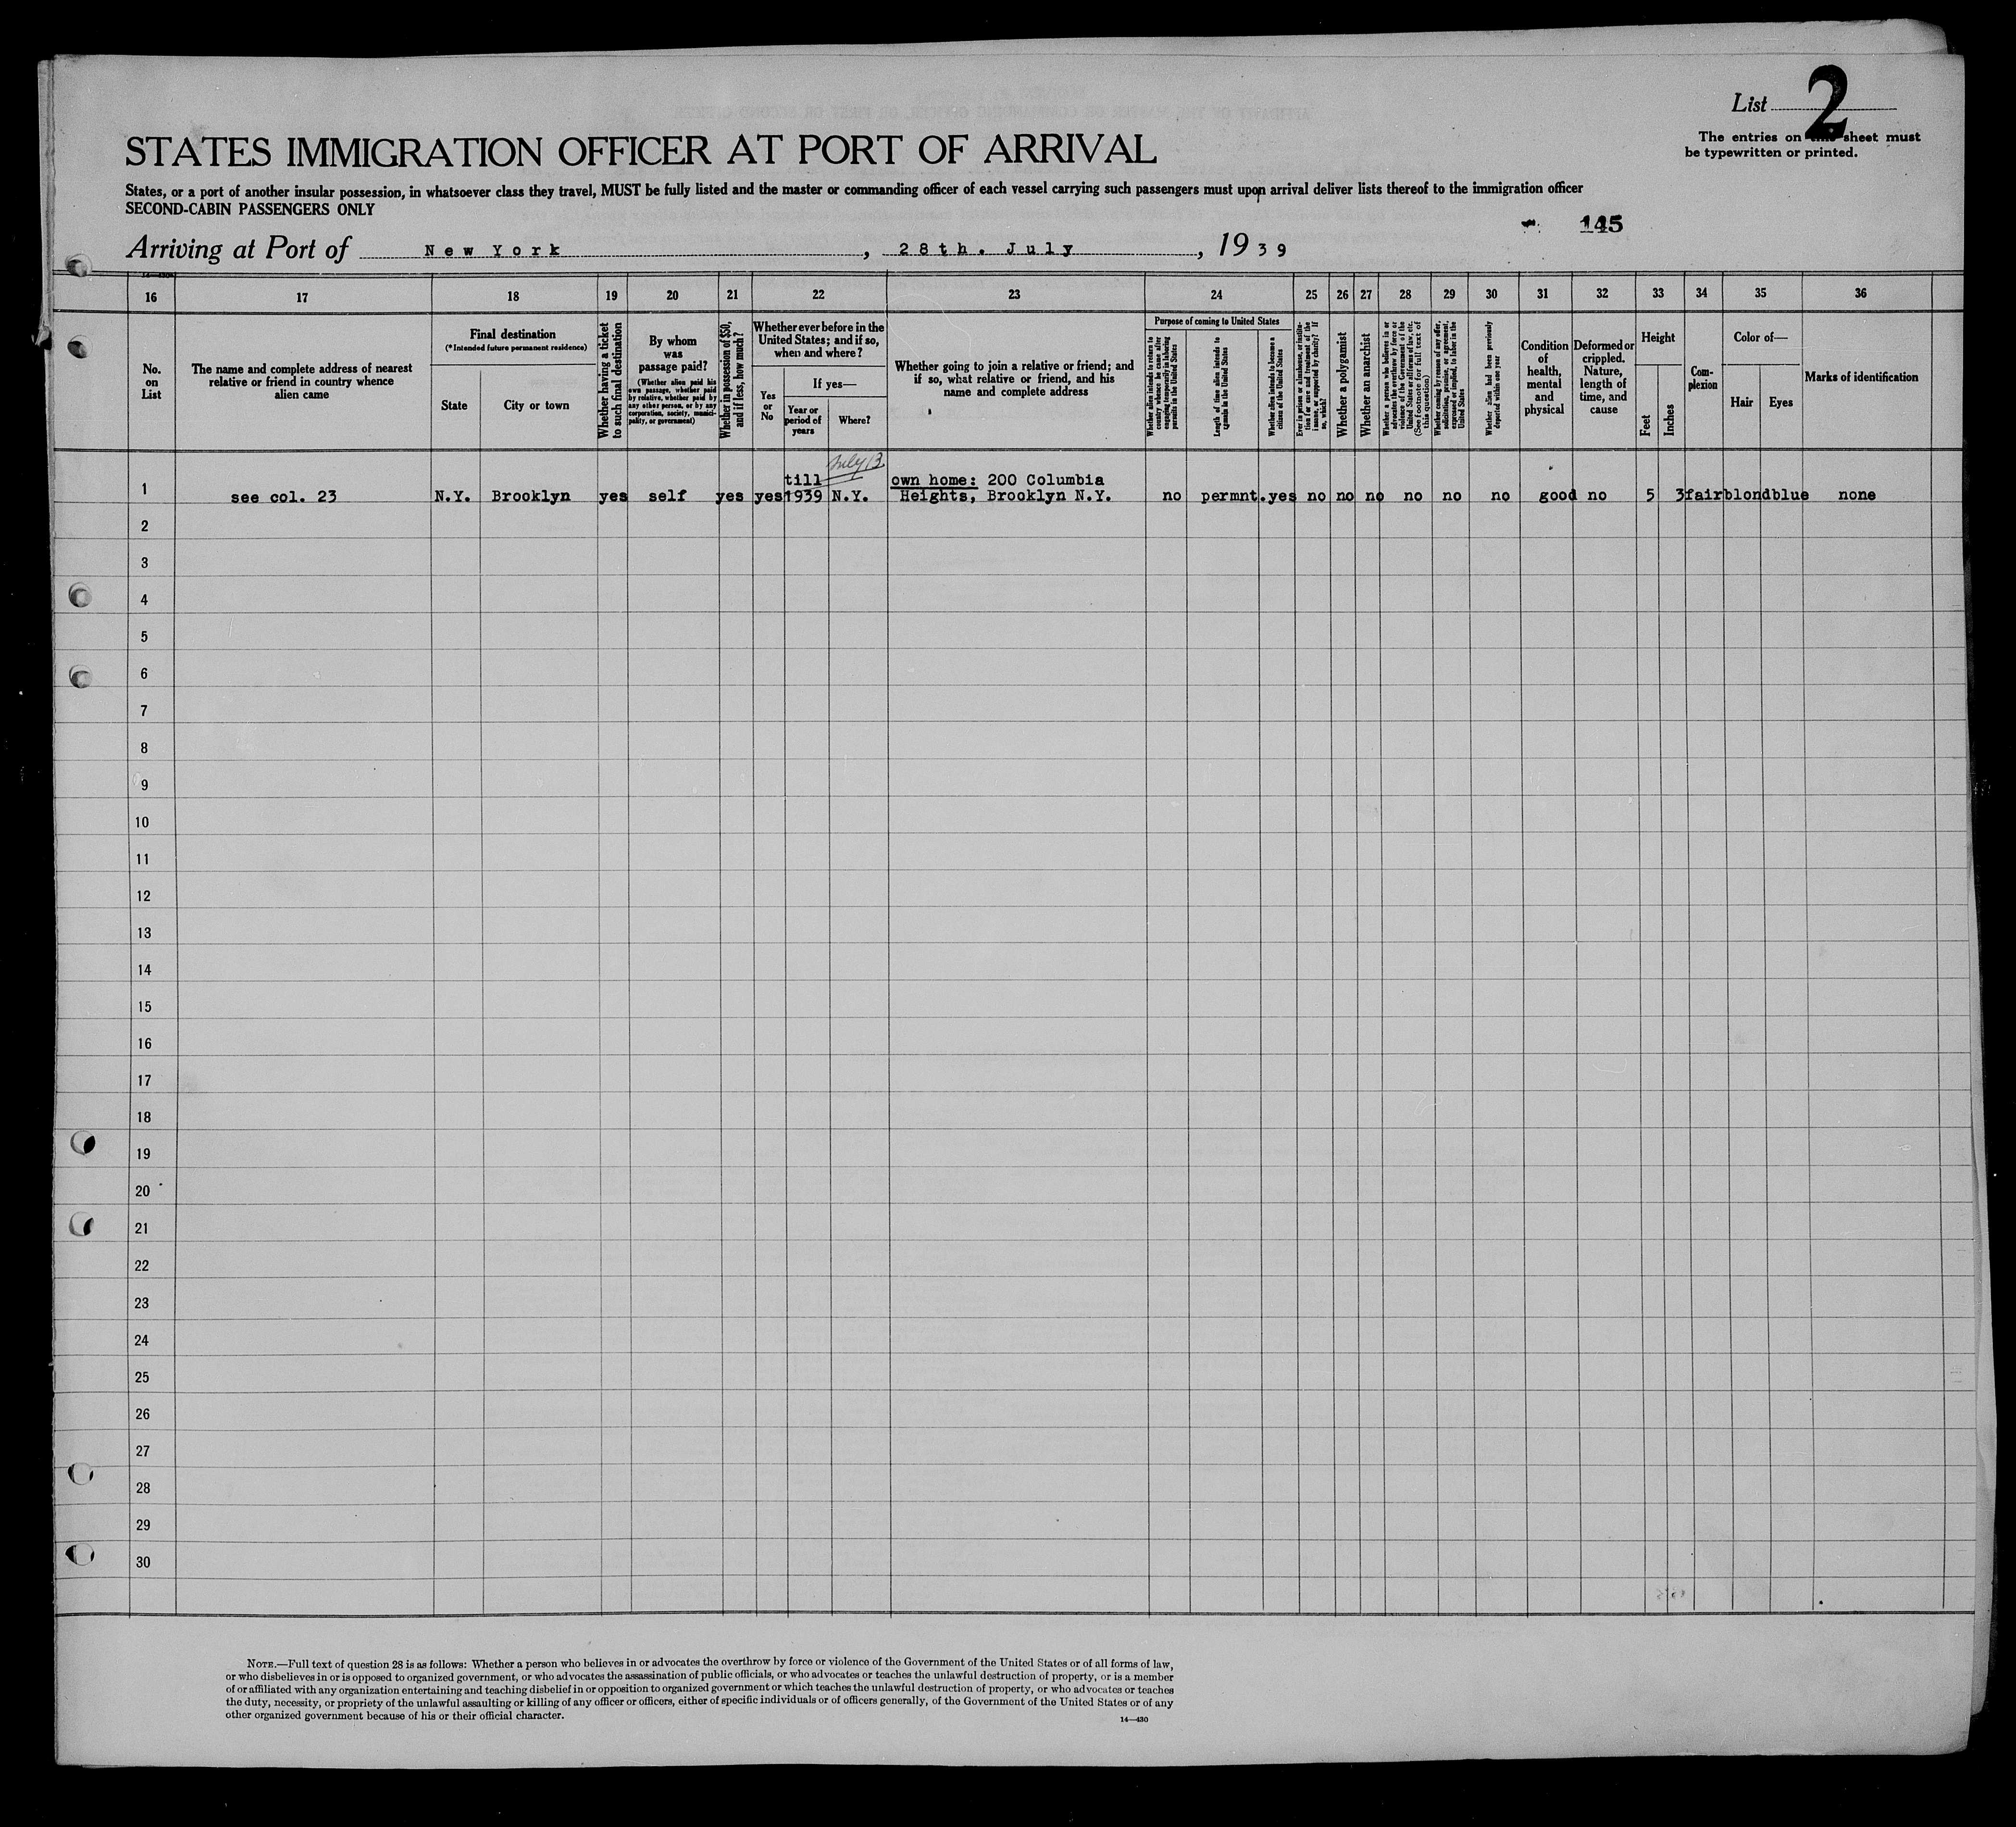 List 2
The entries on this sheet must
be typewritten or printed.
STATES IMMIGRATION OFFICER AT PORT OF ARRIVAL
States, or a port of another insular possession, in whatsoever class they travel, MUST be fully listed and the master or commanding officer of each vessel carrying such passengers must upon arrival deliver lists thereof to the immigration officer
SECOND-CABIN PASSENGERS ONLY
145
Arriving at Port of New York, 28th. July, 1939
16 17 18 19 20 21 22 23 24 25 26 27 28 29 30 31 32 33 34 35 36
No.
on
List
The name and complete address of nearest
relative or friend in country whence
alien came
Final destination
(*Intended future permanent residence)
State
City or town
Whether having a ticket
to such final destination
By whom
was
passage paid?
(Whether alien paid his
own passage, whether paid
by relative, whether paid by
any other person, or by any
corporation, society, munici-
pality, or government)
Whether in possession of $50,
and if less, how much?
Whether ever before in the
United States; and if so,
when and where?
Yes
or
No
If yes—
Year or
period of
years
Where?
Whether going to join a relative or friend; and
if so, what relative or friend, and his
name and complete address
Purpose of coming to United States
Whether alien intends to return to
country whence he came after
engaging temporarily in laboring
pursuits in the United States
Length of time alien intends to
remain in the United States
Whether alien intends to become a
citizen of the United States
Ever in prison or almshouse, or institu-
tion for care and treatment of the
insane, or supported by charity? If
so, which?
Whether a polygamist
Whether an anarchist
Whether a person who believes in or
advocates the overthrow by force or
violence of the Government of the
United States or all forms of law, etc.
(See footnote for full text of
this question)
Whether coming by reason of any offer,
solicitation, promise, or agreement,
expressed or implied, to labor in the
United States
Whether alien had been previously
deported within one year
Condition
of
health,
mental
and
physical
Deformed or
crippled.
Nature,
length of
time, and
cause
Height
Feet
Inches
Com-
plexion
Color of—
Hair
Eyes
Marks of identification
July 13
till own home: 200 Columbia
1 see col. 23 N.Y. Brooklyn yes self yes yes 1939 N.Y. Heights, Brooklyn N.Y. no permnt. yes no no no no no no good no 5 3 fair blond blue none
2
3
4
5
6
7
8
9
10
11
12
13
14
15
16
17
18
19
20
21
22
23
24
25
26
27
28
29
30
NOTE.—Full text of question 28 is as follows: Whether a person who believes in or advocates the overthrow by force or violence of the Government of the United States or of all forms of law,
or who disbelieves in or is opposed to organized government, or who advocates the assassination of public officials, or who advocates or teaches the unlawful destruction of property, or is a member
of or affiliated with any organization entertaining and teaching disbelief in or opposition to organized government or which teaches the unlawful destruction of property, or who advocates or teaches
the duty, necessity, or propriety of the unlawful assaulting or killing of any officer or officers, either of specific individuals or of officers generally, of the Government of the United States or of any
other organized government because of his or their official character.
14—430